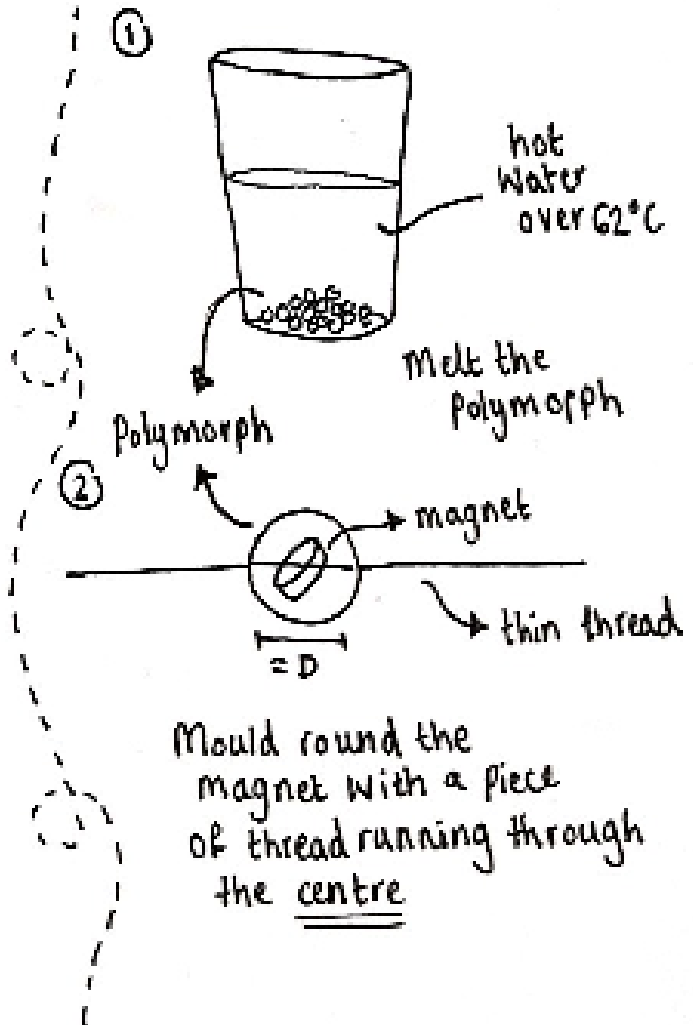 1
hot
water
over 62°C
Melt the
polymorph
Polymorph
2
magnet
thin thread
= D
Mould round the
magnet with a piece
of thread running through
the centre